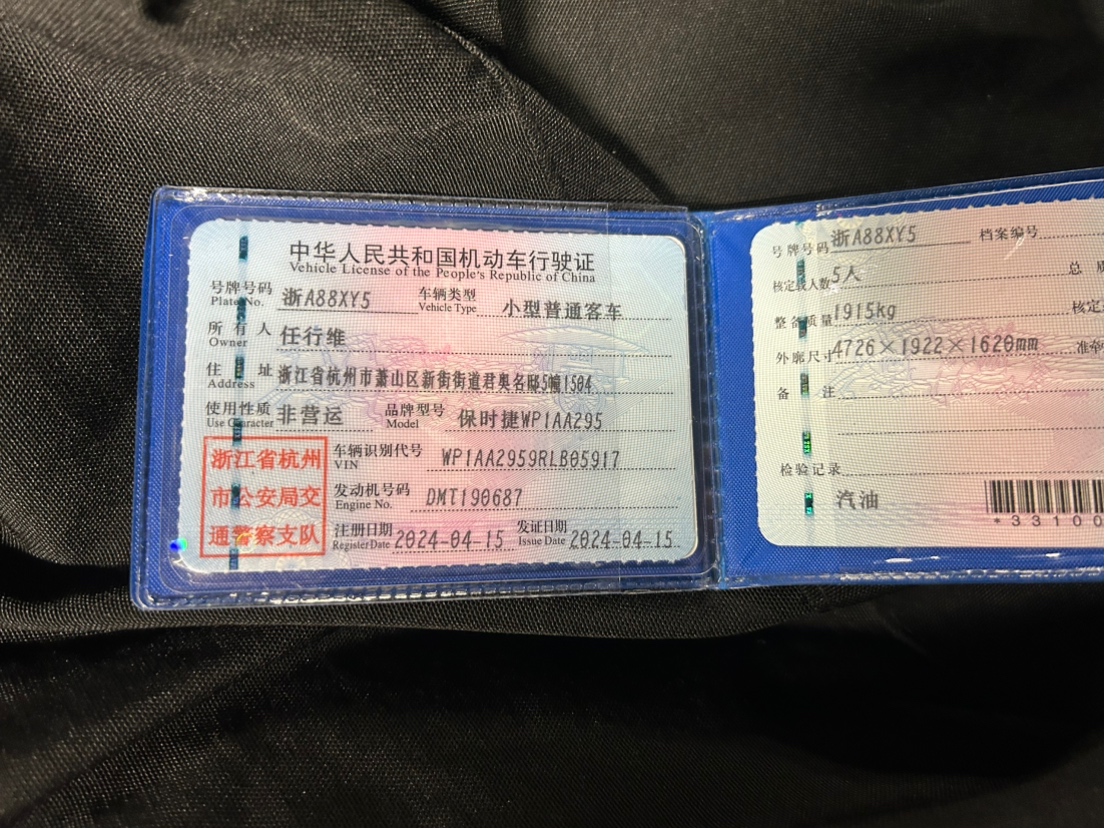 中华人民共和国机动车行驶证
Vehicle License of the People's Republic of China
号牌号码 浙A88XY5 车辆类型 小型普通客车
Plate No. Vehicle Type
所有人 任行维
Owner
住址 浙江省杭州市萧山区新街街道君奥名邸5幢1504
Address
使用性质 非营运 品牌型号 保时捷WP1AA295
Use Character Model
浙江省杭州
市公安局交
通警察支队
车辆识别代号 WP1AA2959RLB05917
VIN
发动机号码 DMT190687
Engine No.
注册日期 2024-04-15 发证日期 2024-04-15
Register Date Issue Date
号牌号码 浙A88XY5 档案编号
核定载人数 5人 总质
整备质量 1915kg 核定
外廓尺寸 4726×1922×1620mm 准牵
备注
检验记录
汽油
*33100